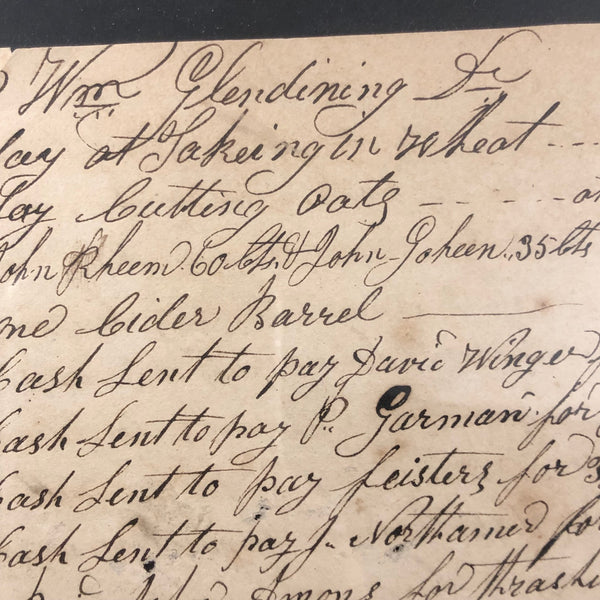 Wm Glendining Dr
day at Takeing in Wheat
day Cutting Oats
John Rheem 60 cts & John Goheen 35 cts
one Cider Barrel
Cash Sent to pay David Winger
Cash Sent to pay P. Garman for
Cash Sent to pay feisters for
Cash Sent to pay J. Northamer for
for thrash